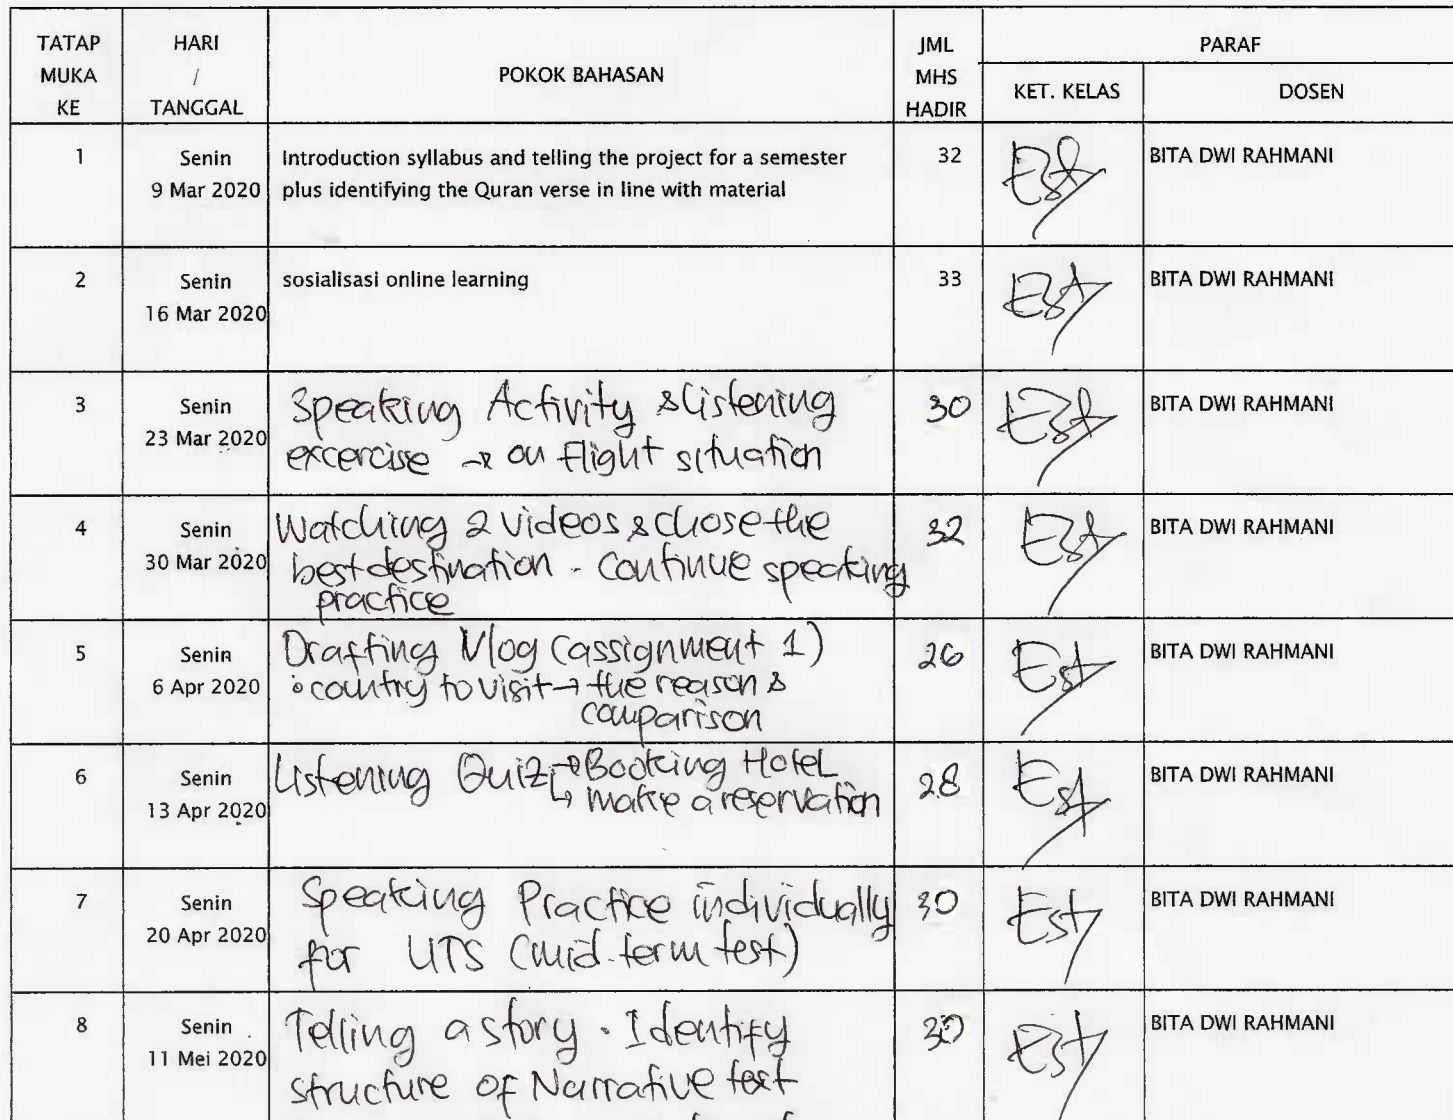 TATAP MUKA KE
HARI / TANGGAL
POKOK BAHASAN
JML MHS HADIR
PARAF
KET. KELAS
DOSEN
1
Senin
9 Mar 2020
Introduction syllabus and telling the project for a semester
plus identifying the Quran verse in line with material
32
Est
BITA DWI RAHMANI
2
Senin
16 Mar 2020
sosialisasi online learning
33
Est
BITA DWI RAHMANI
3
Senin
23 Mar 2020
Speaking Activity & listening
excercise → on flight situation
30
Est
BITA DWI RAHMANI
4
Senin
30 Mar 2020
Watching 2 videos & chose the
best destination - continue speaking
practice
32
Est
BITA DWI RAHMANI
5
Senin
6 Apr 2020
Drafting Vlog (assignment 1)
• country to visit → the reason &
comparison
26
Est
BITA DWI RAHMANI
6
Senin
13 Apr 2020
Listening Quiz → Booking Hotel
↳ make a reservation
28
Est
BITA DWI RAHMANI
7
Senin
20 Apr 2020
Speaking Practice individually
for UTS (mid-term test)
30
Est
BITA DWI RAHMANI
8
Senin
11 Mei 2020
Telling a story . Identify
structure of Narrative text
30
Est
BITA DWI RAHMANI